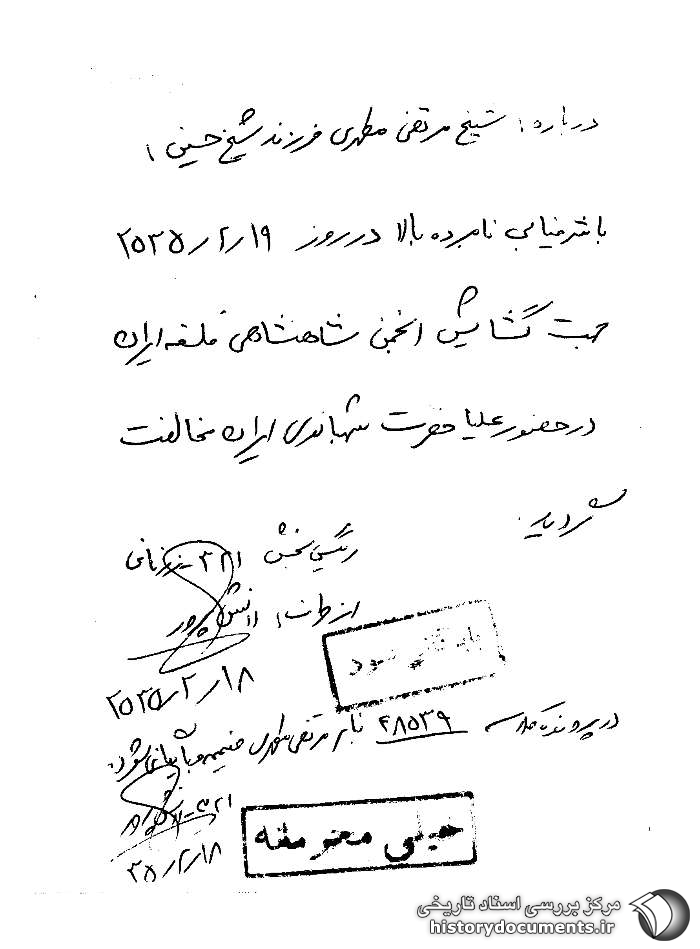 درباره: شیخ مرتضی مطهری فرزند شیخ حسین:
با شرفیابی نامبرده بالا در روز ۲۵۳۵/۲/۱۹
جهت گشایش انجمن شاهنشاهی فلسفه ایران
در حضور علیا حضرت شهبانوی ایران مخالفت
گردید
رئیس بخش ۳۸۱ـ
از طرف: دانش پرور
باید
شود
۲۵۳۵/۲/۱۸
در پرونده کلاسه ۴۸۵۳۹ بنام مرتضی مطهری ضمیمه و بایگانی شود
۳۵/۲/۱۸
خیلی محرمانه
مرکز بررسی اسناد تاریخی
historydocuments.ir